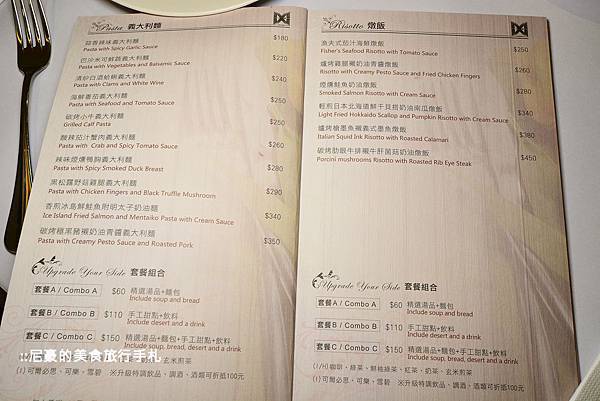 Pasta 義大利麵
蒜香辣味義大利麵 $180
Pasta with Spicy Garlic Sauce
巴沙米可鮮蔬義大利麵 $220
Pasta with Vegetables and Balsamic Sauce
清炒白酒蛤蜊義大利麵 $240
Pasta with Clams and White Wine
海鮮番茄義大利麵 $250
Pasta with Seafood and Tomato Sauce
碳烤小牛義大利麵 $250
Grilled Calf Pasta
酸辣茄汁蟹肉義大利麵 $250
Pasta with Crab and Spicy Tomato Sauce
辣味煙燻鴨胸義大利麵 $280
Pasta with Spicy Smoked Duck Breast
黑松露野菇雞腿義大利麵 $290
Pasta with Chicken Fingers and Black Truffle Mushroom
香煎冰島鮮鮭魚附明太子奶油麵 $340
Ice Island Fried Salmon and Mentaiko Pasta with Cream Sauce
碳烤極黑豬襯奶油青醬義大利麵 $350
Pasta with Creamy Pesto Sauce and Roasted Pork
Upgrade Your Side 套餐組合
套餐A / Combo A $60 精選湯品+麵包
Include soup and bread
套餐B / Combo B $110 手工甜點+飲料
Include desert and a drink
套餐C / Combo C $150 精選湯品+麵包+手工甜點+飲料
Include soup, bread, desert and a drink
玄米煎茶
(I)可爾必思、可樂、雪碧 ※升級特調飲品、調酒、酒類可折抵100元
::尼豪的美食旅行手札
Risotto 燉飯
漁夫式茄汁海鮮燉飯 $250
Fisher's Seafood Risotto with Tomato Sauce
爐烤雞腿襯奶油青醬燉飯 $260
Risotto with Creamy Pesto Sauce and Fried Chicken Fingers
煙燻鮭魚奶油燉飯 $280
Smoked Salmon Risotto with Cream Sauce
輕煎日本北海道鮮干貝搭奶油南瓜燉飯 $340
Light Fried Hokkaido Scallop and Pumpkin Risotto with Cream Sauce
爐烤槍墨魚襯義式墨魚燉飯 $380
Italian Squid Ink Risotto with Roasted Calamari
碳烤肋眼牛排襯牛肝菌菇奶油燉飯 $450
Porcini mushrooms Risotto with Roasted Rib Eye Steak
Upgrade Your Side 套餐組合
套餐A / Combo A $60 精選湯品+麵包
Include soup and bread
套餐B / Combo B $110 手工甜點+飲料
Include desert and a drink
套餐C / Combo C $150 精選湯品+麵包+手工甜點+飲料
Include soup, bread, desert and a drink
(I/H)咖啡、綠茶、鮮柚綠茶、紅茶、奶茶、玄米煎茶
(I)可爾必思、可樂、雪碧 ※升級特調飲品、調酒、酒類可折抵100元